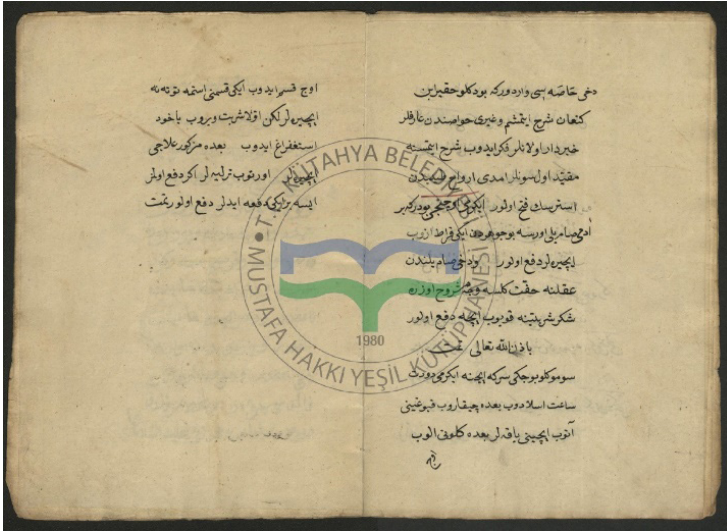 دخی خاصه سی واردور که بو دکلو حقیر ابن
کنعان شرح ایتمشم وغیری خواصندن عارفلر
خبردار اولانلر فکر ایدوب شرح ایتمسنه
مقید اولسونلر امدی ارواح
استرسك فتح اولور ایکرمی اوچنجی بودرکه بر
آدمی صام یلی اورسه بو جوهردن ایکی قراط ازوب
ایچیرەلر دفع اولور ودخی صام یلندن
عقلنه خفت کلسه وجه مشروح اوزره
شکر شربتینه قویوب ایچه دفع اولور
باذن الله تعالی تمت
سوموکلو بوجکی سرکه ایچنه ایکرمی دورت
ساعت اسلادوب بعده چیقاروب قبوغینی
آتوب ایچینی یاقەلر بعده کلونی الوب
اوچ
اوچ قسم ایدوب ایکی قسمنی استمه توتەنه
ایچیرەلر لکن اولا شربت ویروب یاخود
استفراغ ایدوب بعده مزکور علاجی
اورتوب ترلیەلر اکر دفع اولمز
ایسه بر ایکی دفعه ایدلر دفع اولور تمت
T.C. KÜTAHYA BELEDİYESİ
MUSTAFA HAKKI YEŞİL KÜTÜPHANESİ
1980